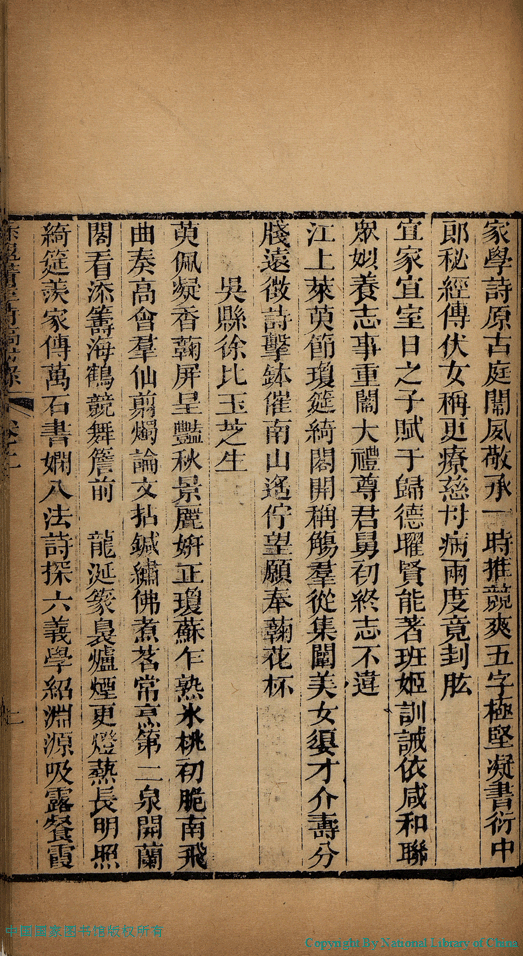 家學詩原古庭闈夙敬承一時推競爽五字極堅凝書衍中
郎秘經傳伏女稱更療慈母病兩度竟刲肱
宜家宜室日之子賦于歸德曜賢能著班姬訓誡依咸和聯
眾姒養志事重闈大禮尊君舅初終志不違
江上萊萸節瓊筵綺閣開稱觴羣從集闈美女須才介壽分
牋遠徴詩擊鉢催南山遙佇望願奉菊花杯
吳縣徐比玉芝生
萸佩凝香菊屏呈豔秋景麗妍正瓊蘇乍熟氷桃初脆南飛
曲奏高會羣仙翦燭論文拈鍼繡佛煮茗常烹第二泉開蘭
閣看添籌海鶴競舞簷前　龍涎篆裊爐煙更燈爇長明照
綺筵羨家傳萬石書嫻八法詩探六義學紹淵源吸露餐霞
中國國家圖書館版权所有
Copyright By National Library of China